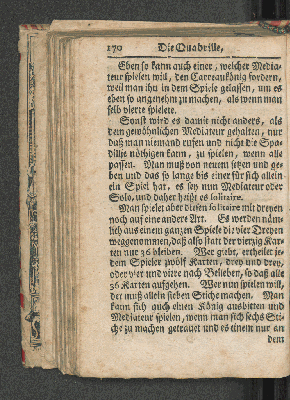 170 Die Quadrille,
Eben so kann auch einer, welcher Media-
teur spielen will, den Carreaukönig fordern,
weil man ihn in dem Spiele gelassen, um es
eben so angenehm zu machen, als wenn man
selb vierte spielete.
Sonst wird es damit nicht anders, als
dem gewöhnlichen Mediateur gehalten, nur
daß man niemand rufen und nicht die Spa-
dillje nöthigen kann, zu spielen, wenn alle
passen. Man muß von neuem geben und ge-
ben und das so lange bis einer für sich allein
ein Spiel hat, es sey nun Mediateur oder
Solo, und daher heißt es solitaire.
Man spielet aber diesen solitaire mit dreyen
noch auf eine andere Art. Es werden näm-
lich aus einem ganzen Spiele die vier Dreyen
weggenommen, daß also statt der vierzig Kar-
ten nur 36 bleiben. Wer giebt, ertheilet je-
dem Spieler zwölf Karten, drey und drey,
oder vier und viere nach Belieben, so daß alle
36 Karten aufgehen. Wer nun spielen will,
der muß allein sieben Stiche machen. Man
kann sich auch einen König ausbitten und
Mediateur spielen, wenn man sich sechs Sti-
che zu machen getrauet und es einem nur an
dem